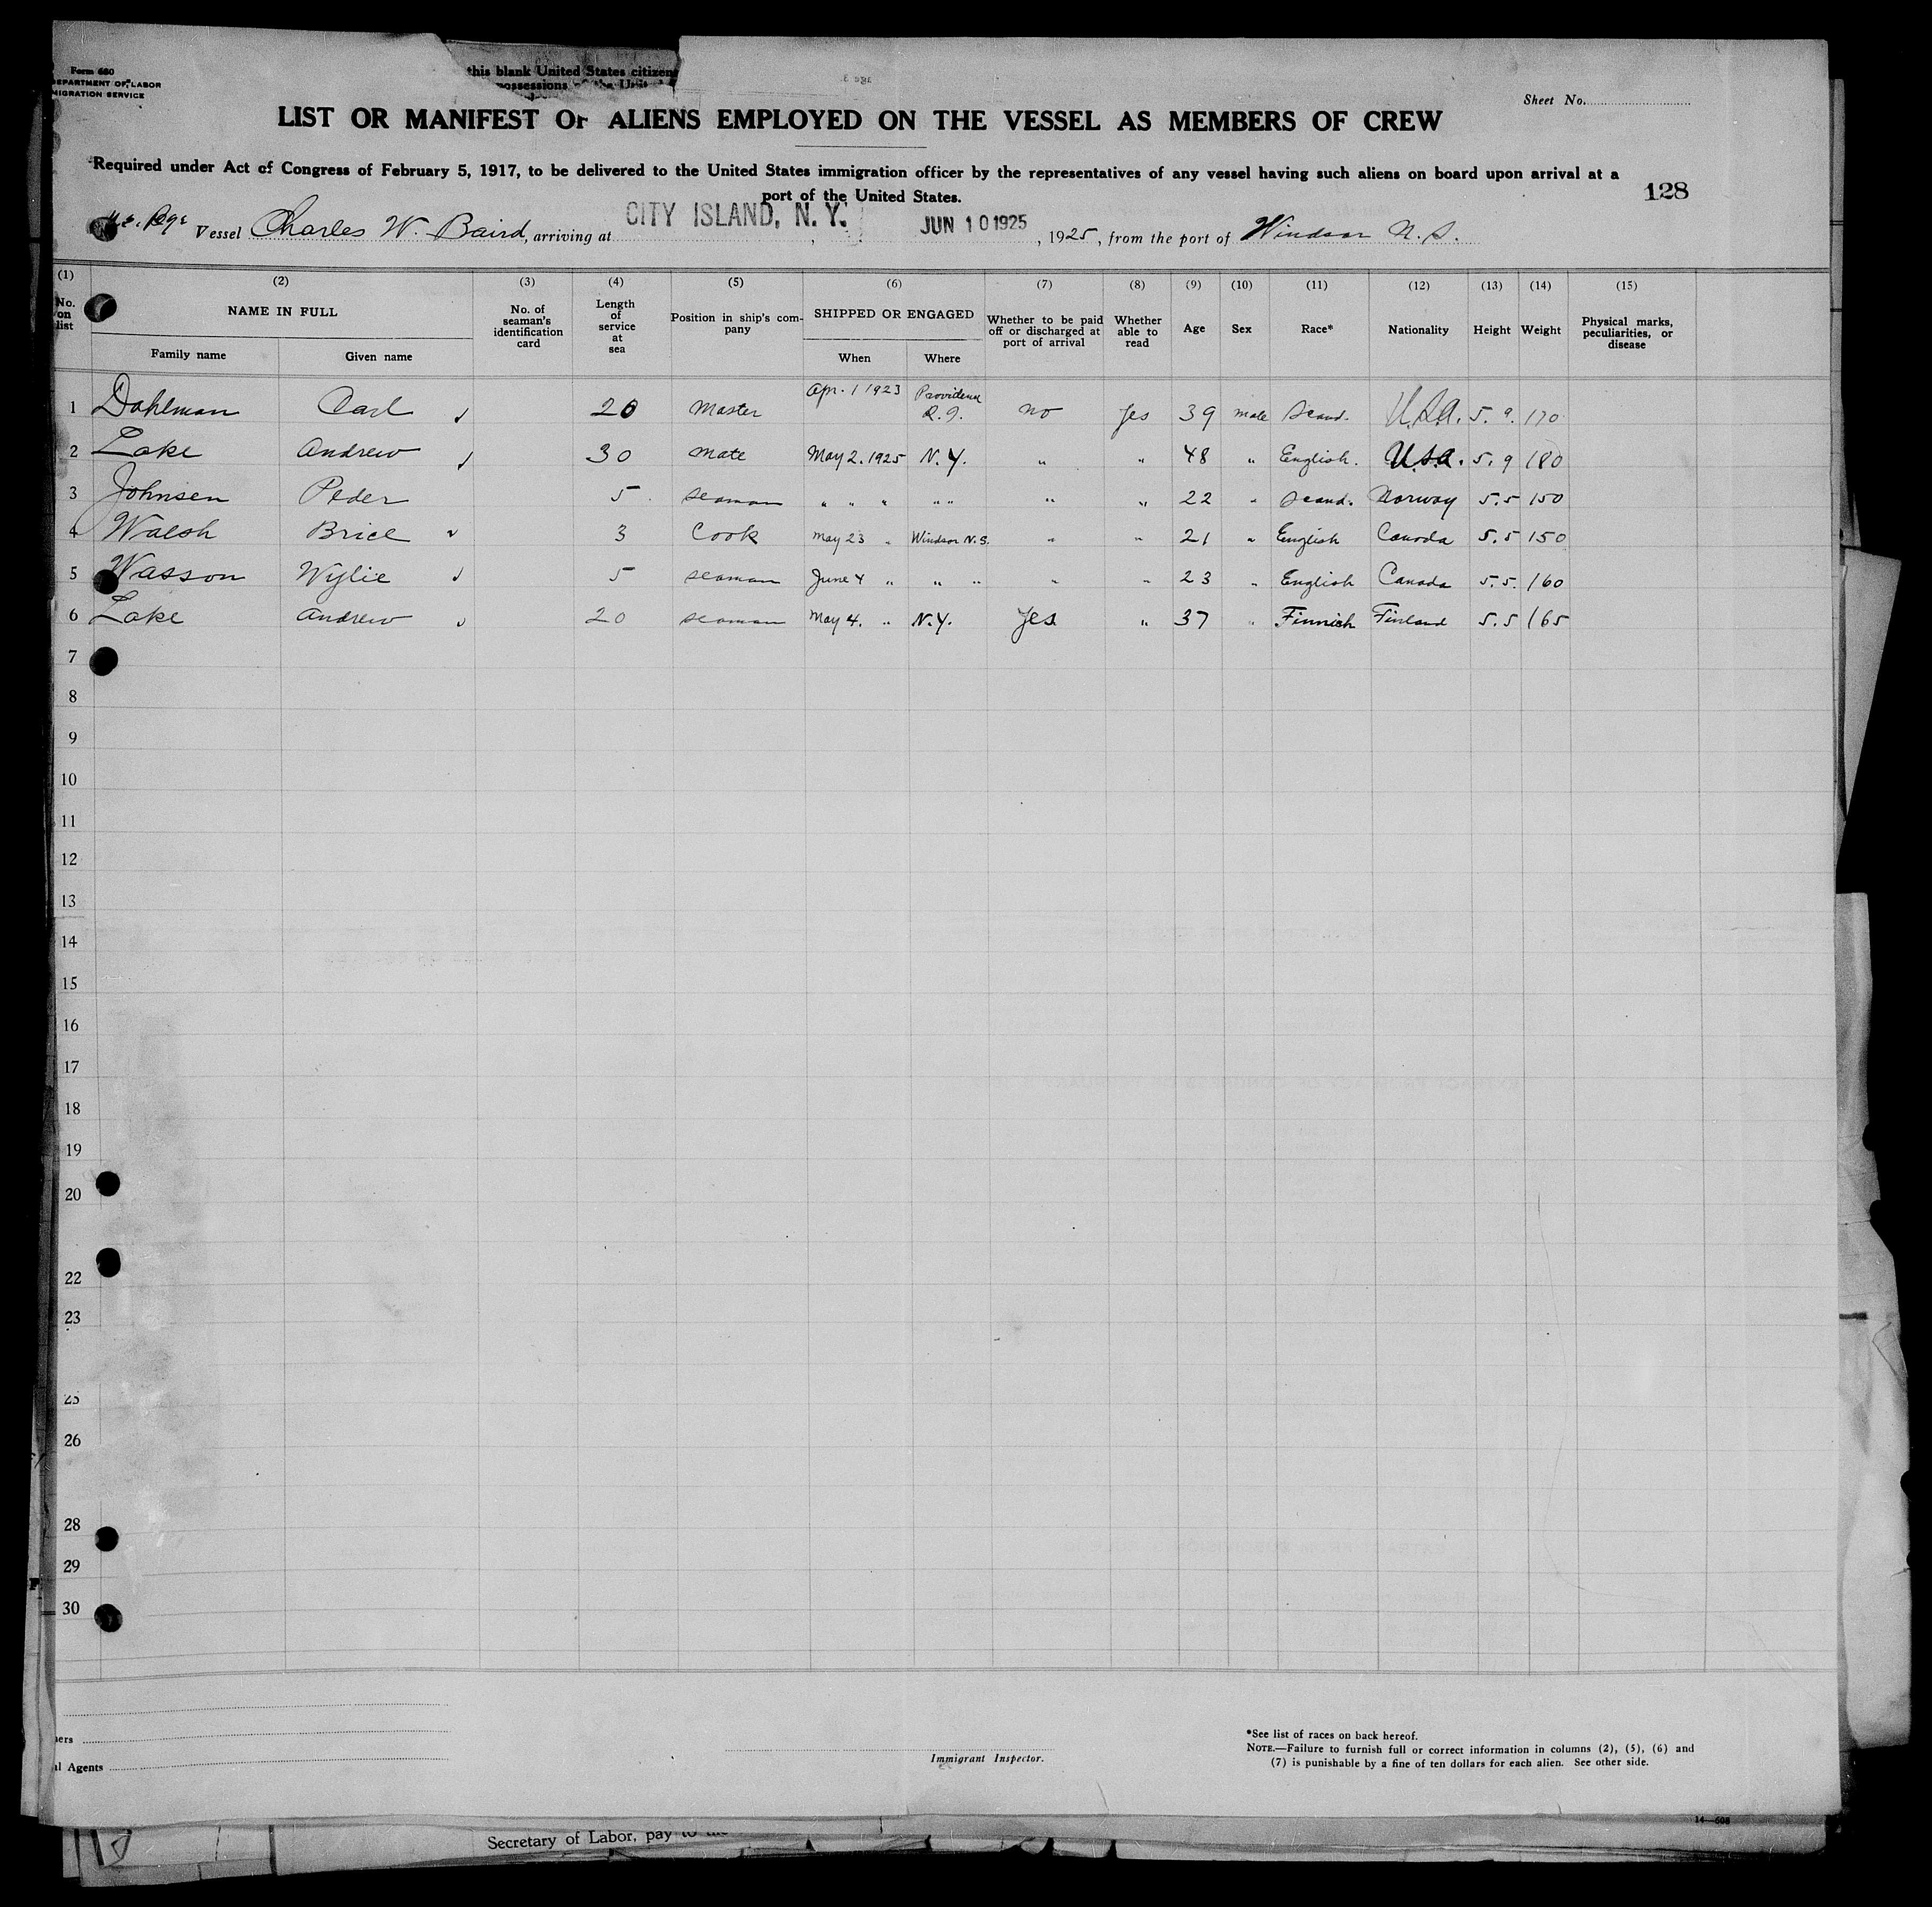 Form 680
DEPARTMENT OF LABOR
MIGRATION SERVICE
this blank United States citizens
possessions of the Unit
Sheet No.
LIST OR MANIFEST OF ALIENS EMPLOYED ON THE VESSEL AS MEMBERS OF CREW
Required under Act of Congress of February 5, 1917, to be delivered to the United States immigration officer by the representatives of any vessel having such aliens on board upon arrival at a
port of the United States.
128
Vessel Charles W. Baird, arriving at CITY ISLAND, N.Y. JUN 10 1925, 1925, from the port of Windsor N.S.
(1) (2) (3) (4) (5) (6) (7) (8) (9) (10) (11) (12) (13) (14) (15)
No. on list NAME IN FULL No. of seaman's identification card Length of service at sea Position in ship's company SHIPPED OR ENGAGED Whether to be paid off or discharged at port of arrival Whether able to read Age Sex Race* Nationality Height Weight Physical marks, peculiarities, or disease
Family name Given name When Where
1 Dahlman Carl 20 Master Apr. 1 1923 Providence R.I. no yes 39 male Scand. U.S.A. 5.9. 170
2 Lake Andrew 30 Mate May 2. 1925 N.Y. " " 48 " English. U.S.A. 5.9 180
3 Johnsen Peder 5 seaman " " " " " " " 22 " Scand. Norway 5.5 150
4 Walsh Brice 3 Cook May 23 " Windsor N.S. " " 21 " English Canada 5.5 150
5 Wasson Wylie 5 seaman June 4 " " " " " 23 " English Canada 5.5. 160
6 Lake Andrew 20 seaman May 4. " N.Y. Yes " 37 " Finnish Finland 5.5 165
7
8
9
10
11
12
13
14
15
16
17
18
19
20
22
23
25
26
28
29
30
ners
al Agents
Immigrant Inspector.
*See list of races on back hereof.
NOTE.—Failure to furnish full or correct information in columns (2), (5), (6) and
(7) is punishable by a fine of ten dollars for each alien. See other side.
14—608
Secretary of Labor, pay to the